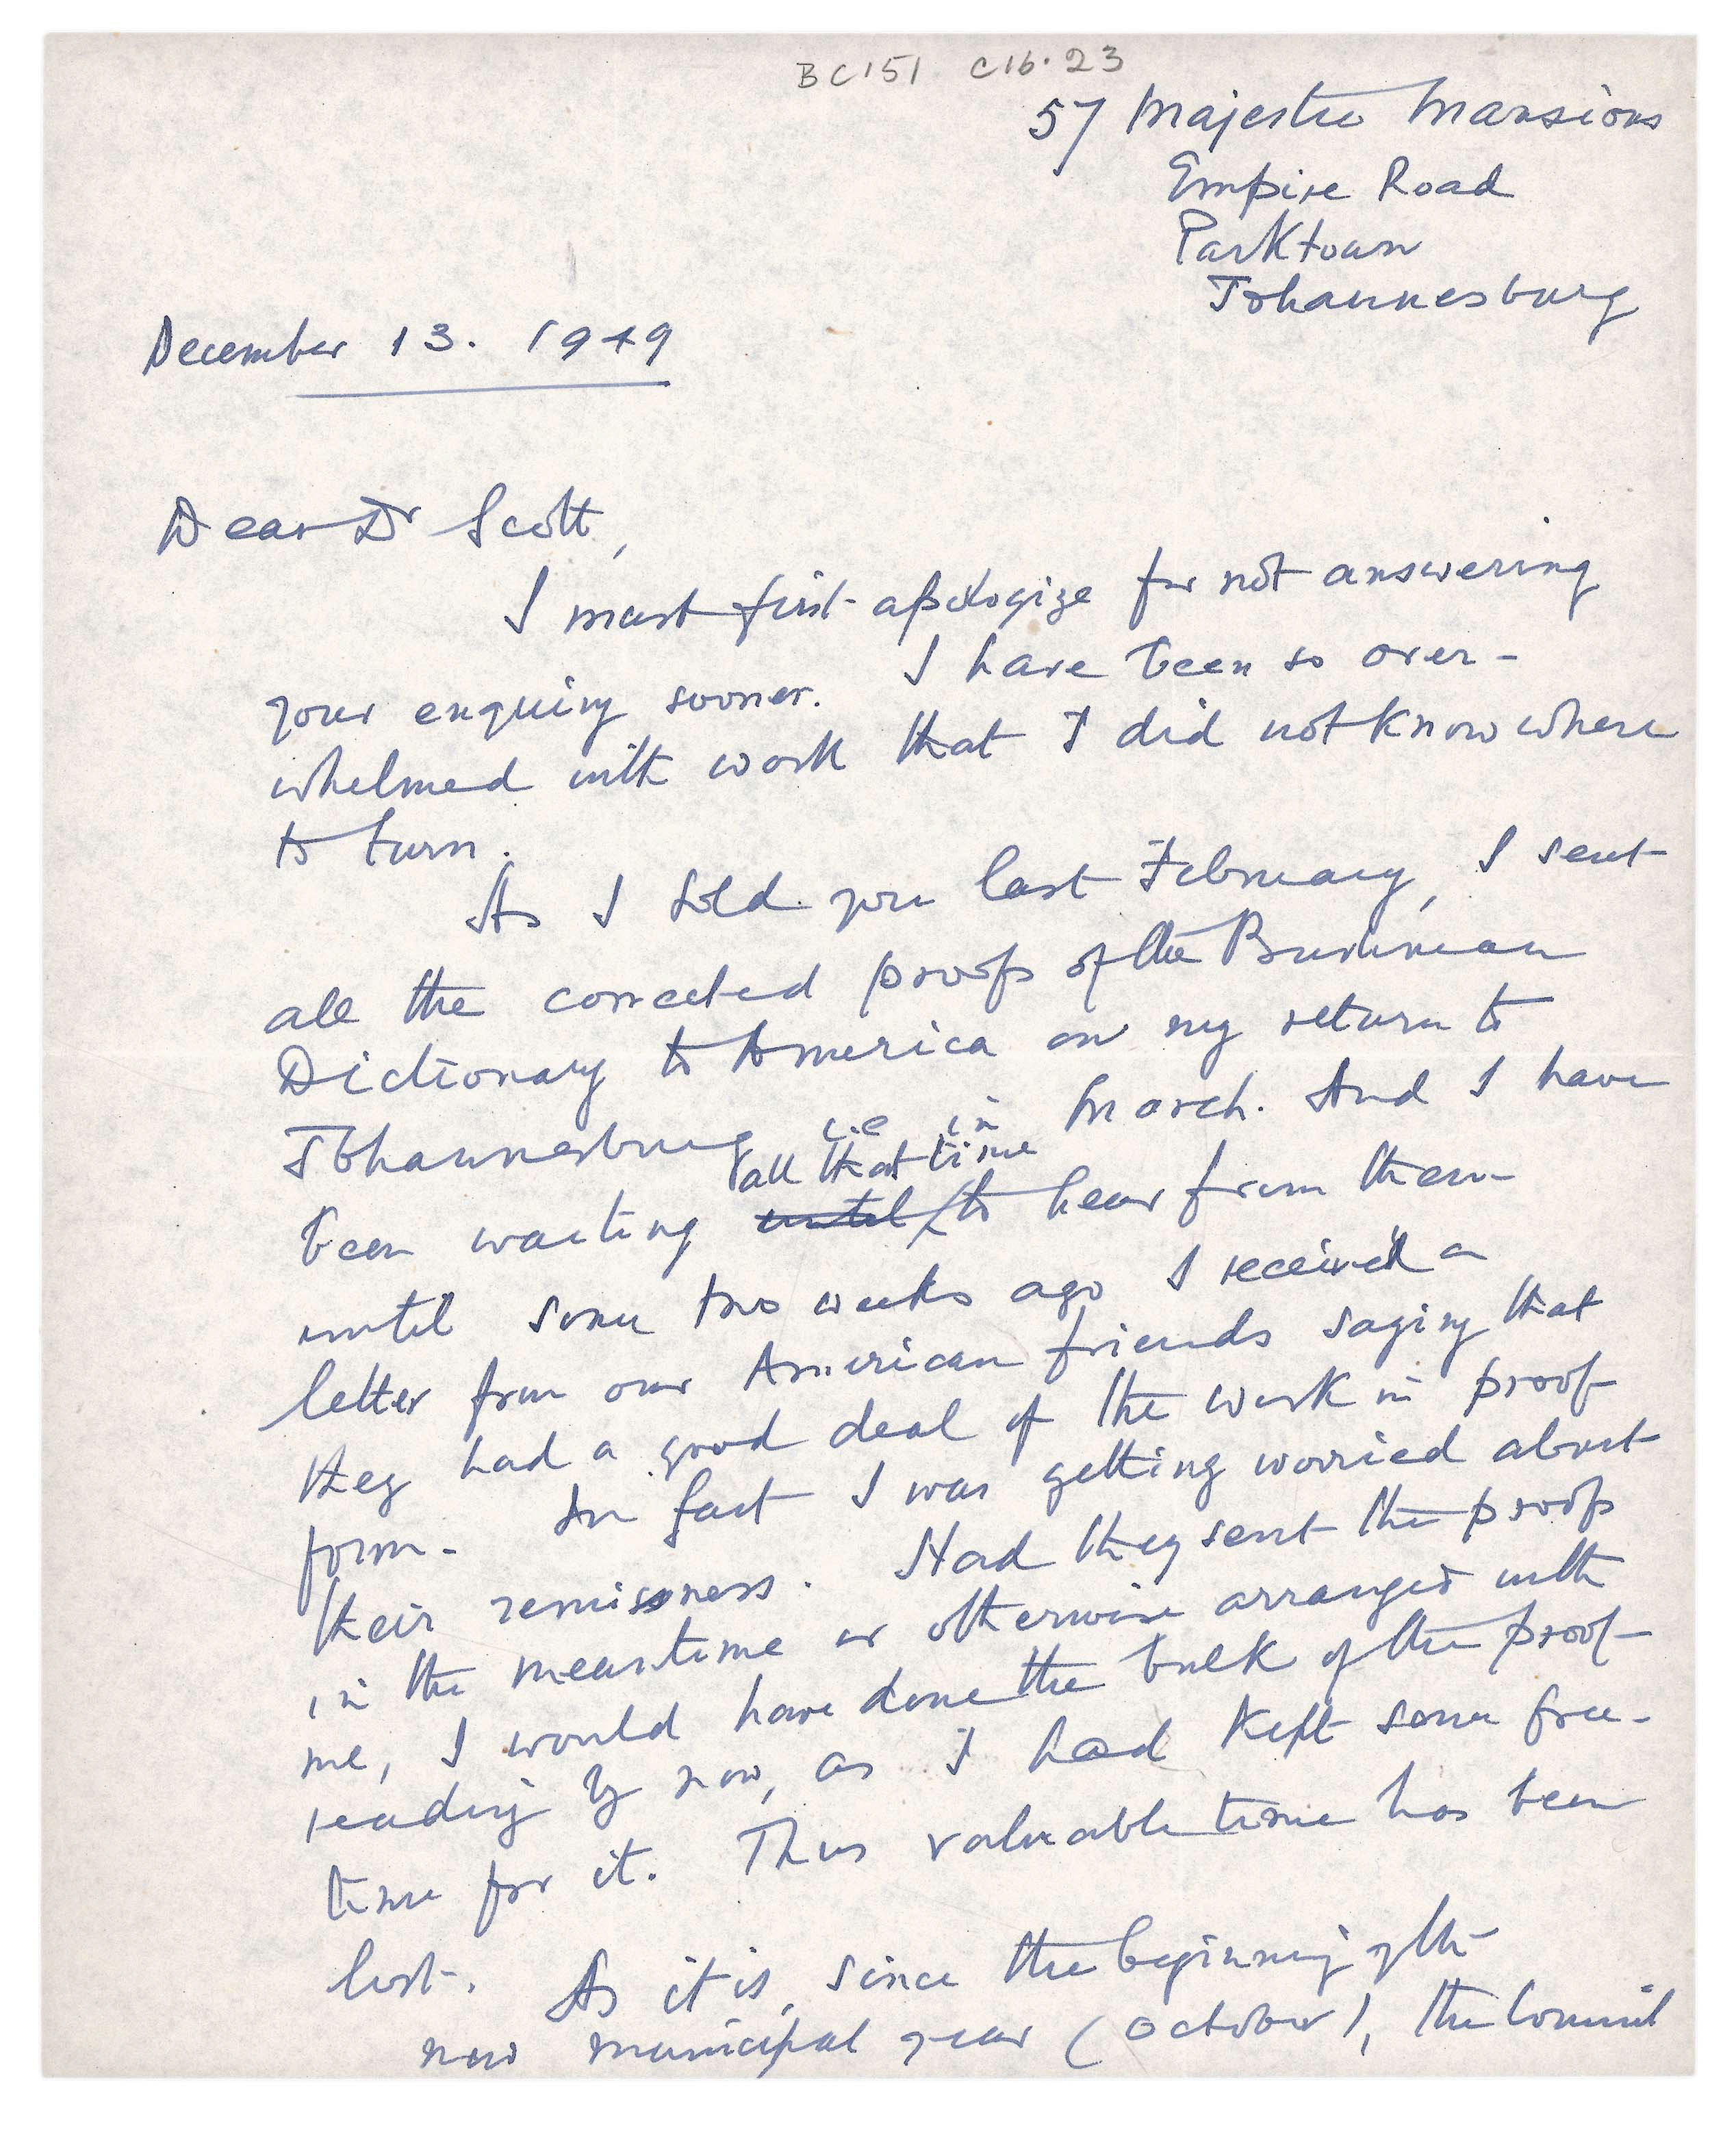 BC151 C16.23
57 Majestic Mansions
Empire Road
Parktown
Johannesburg
December 13. 1949
Dear Dr Scott,
I must first apologize for not answering
your enquiry sooner. I have been so over-
whelmed with work that I did not know where
to turn.
As I told you last February, I sent
all the corrected proofs of the Bushman
Dictionary to America on my return to
Johannesburg i.e in March. And I have
all that time
been waiting until to hear from them
until some two weeks ago I received a
letter from our American friends saying that
they had a good deal of the work in proof
form. In fact I was getting worried about
their remissness. Had they sent the proofs
in the meantime or otherwise arranged with
me, I would have done the bulk of the proof-
reading by now, as I had kept some free-
time for it. Thus valuable time has been
lost. As it is, since the beginning of the
new municipal year (October), the Council